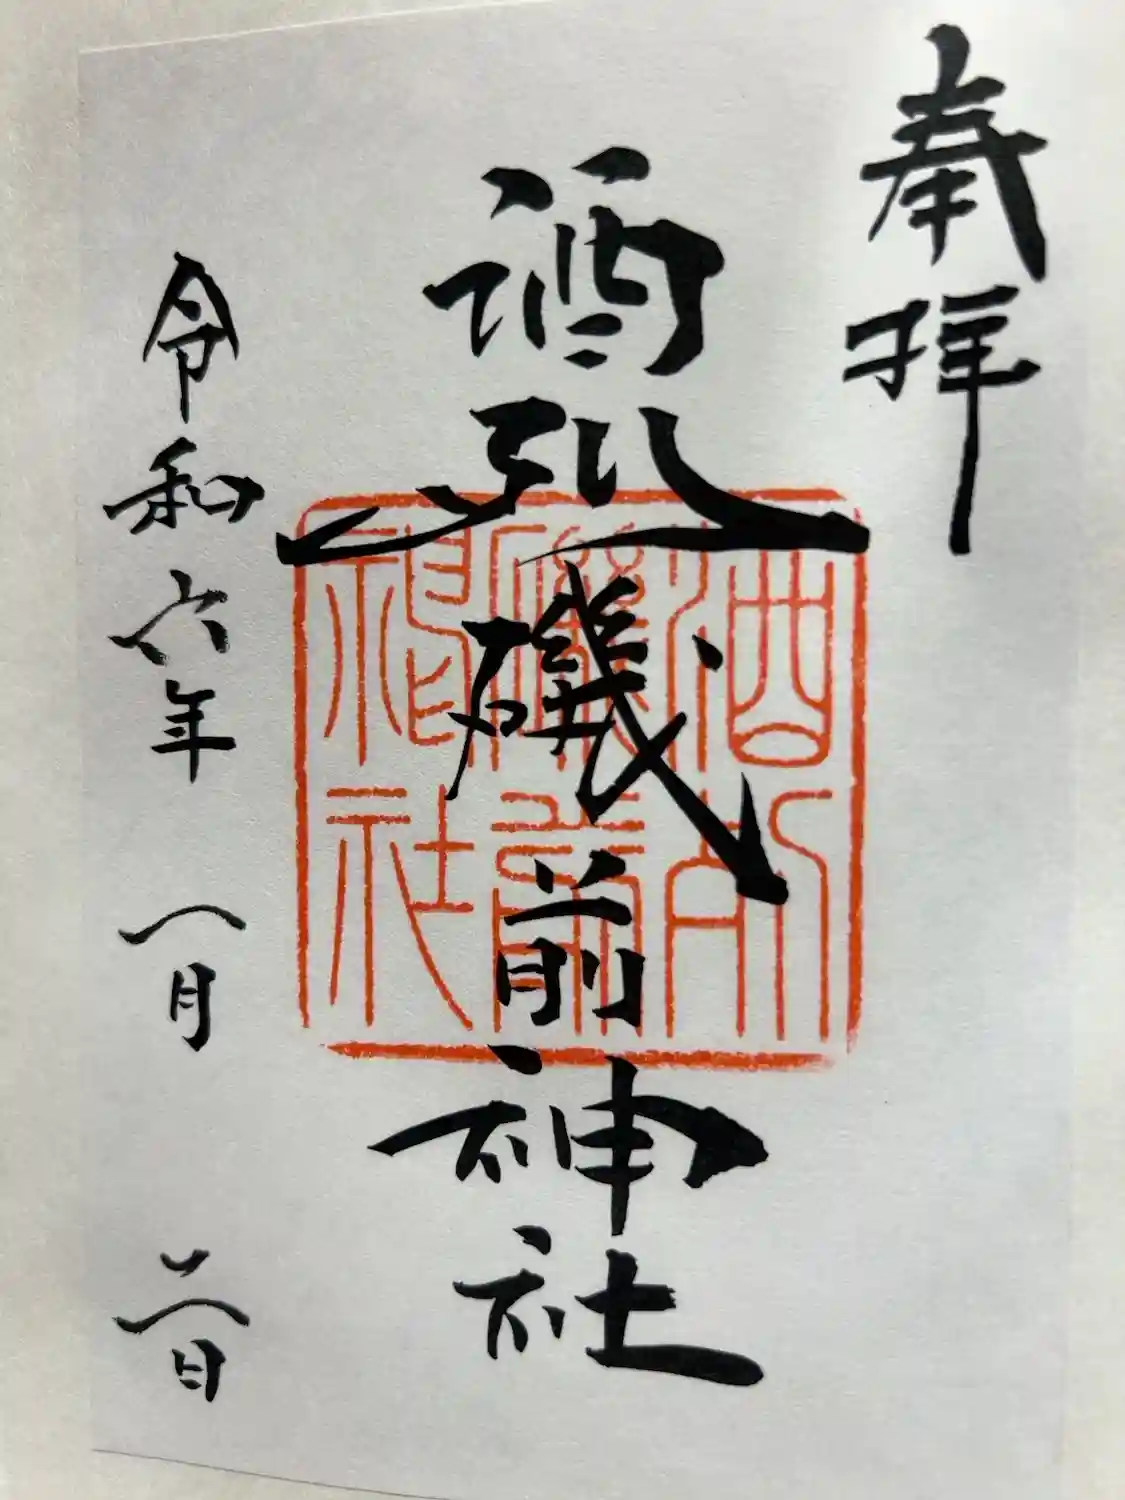 奉拝
酒列磯前神社
令和六年一月二日
酒列
磯前
神社